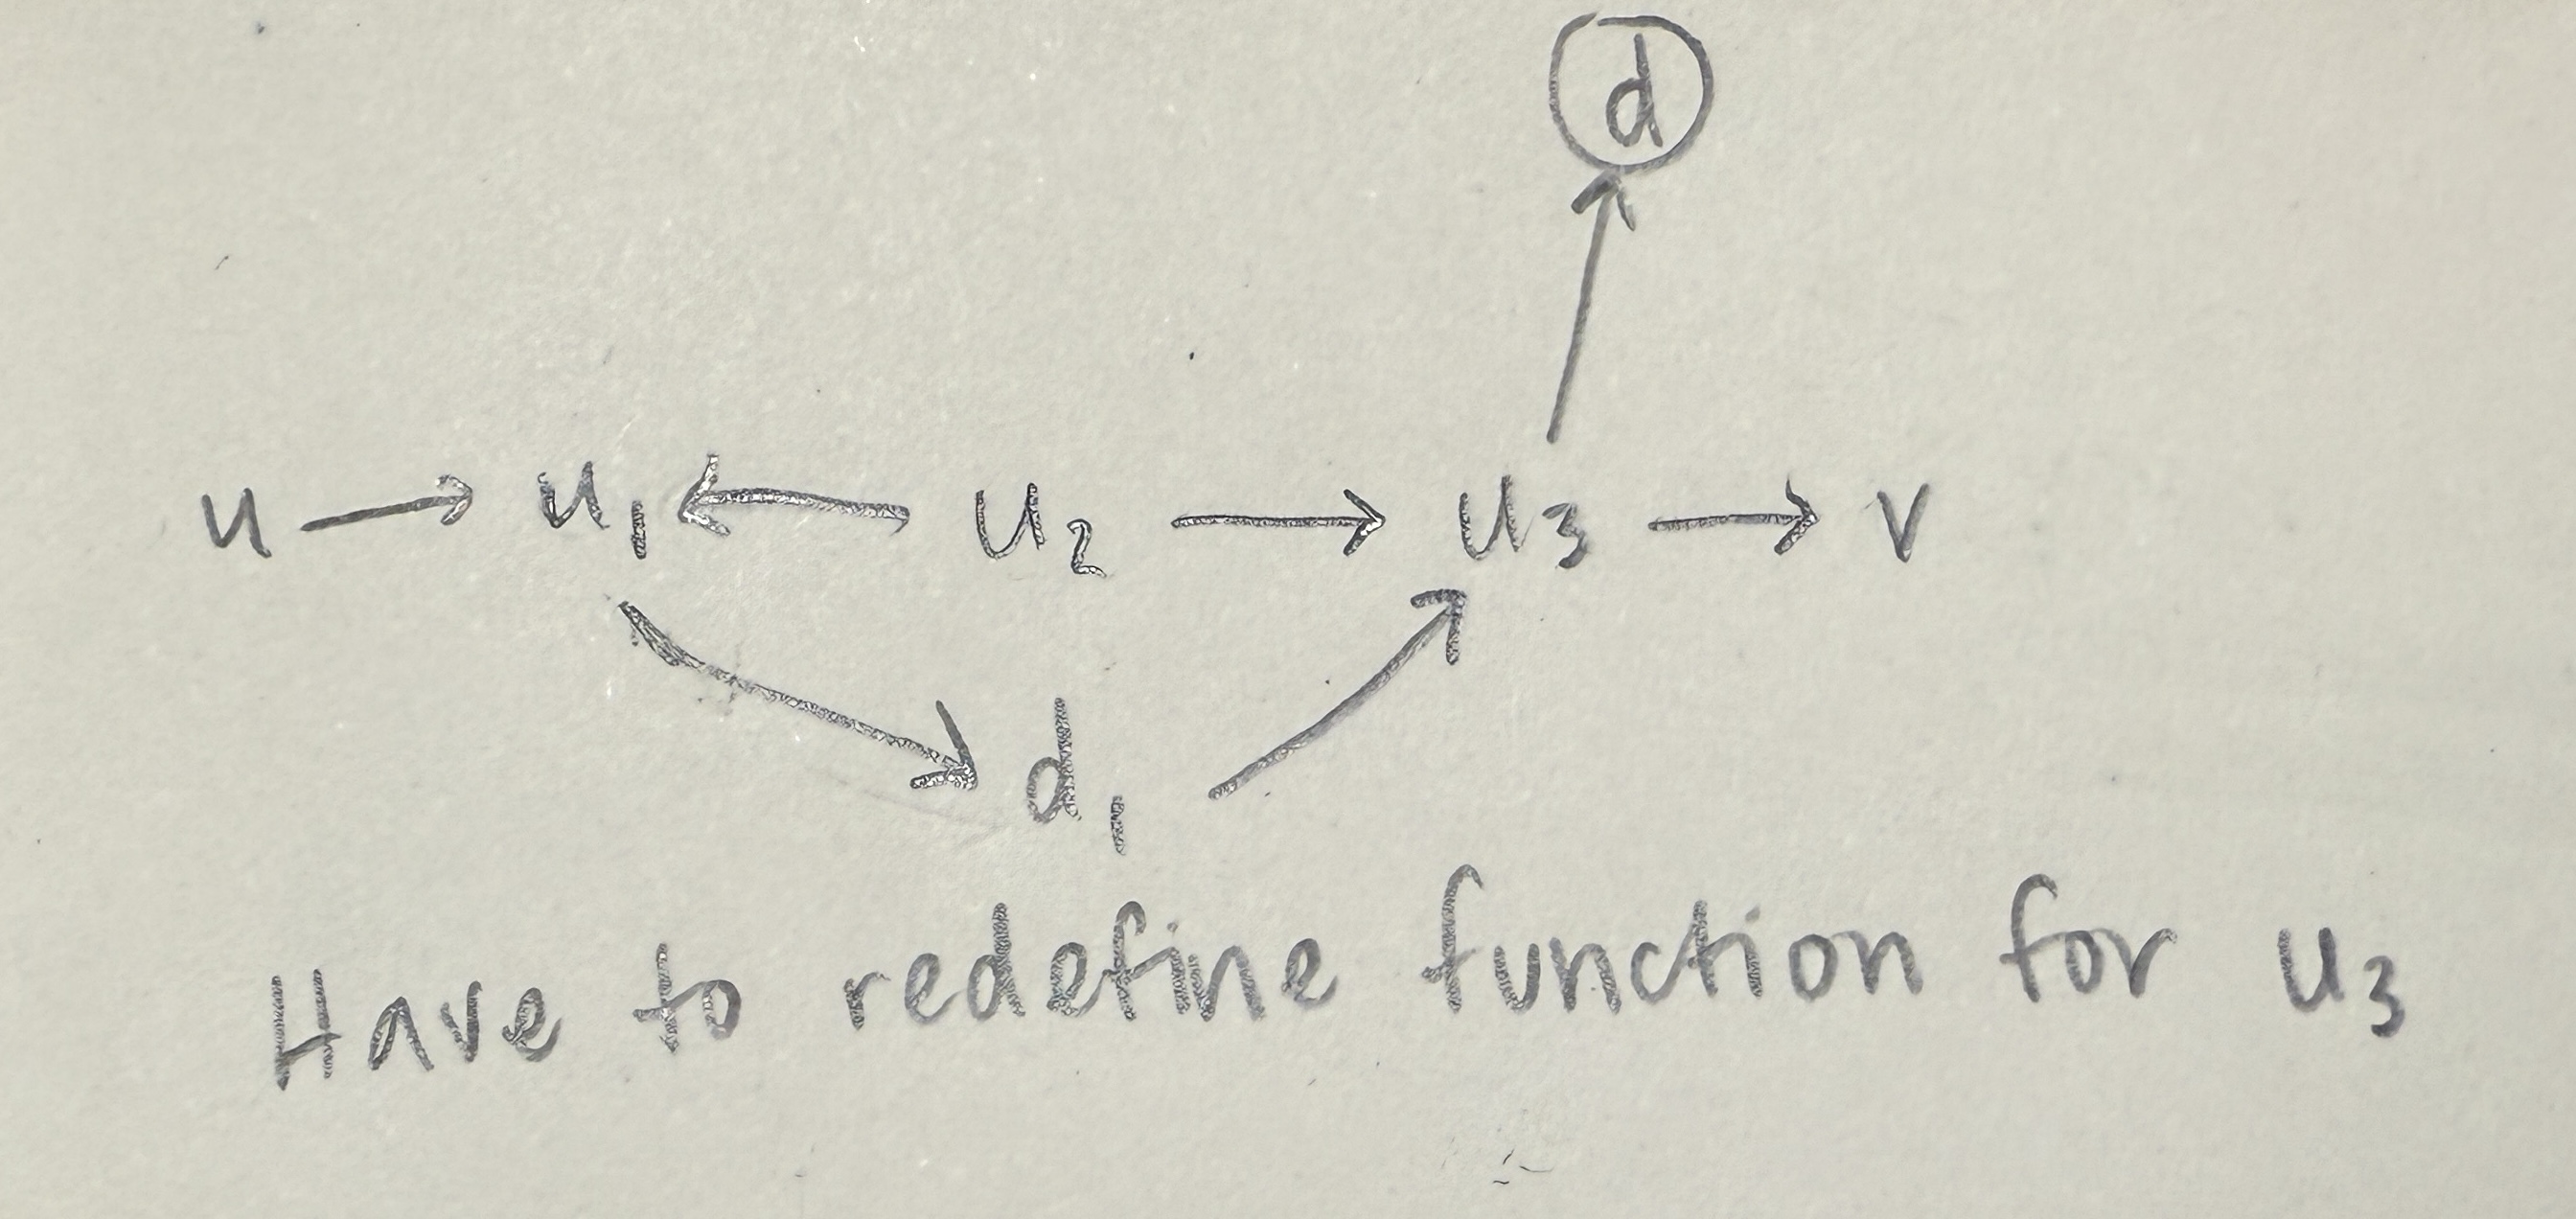 d
u → u₁ ← u₂ → u₃ → v
d₁
Have to redefine function for u₃